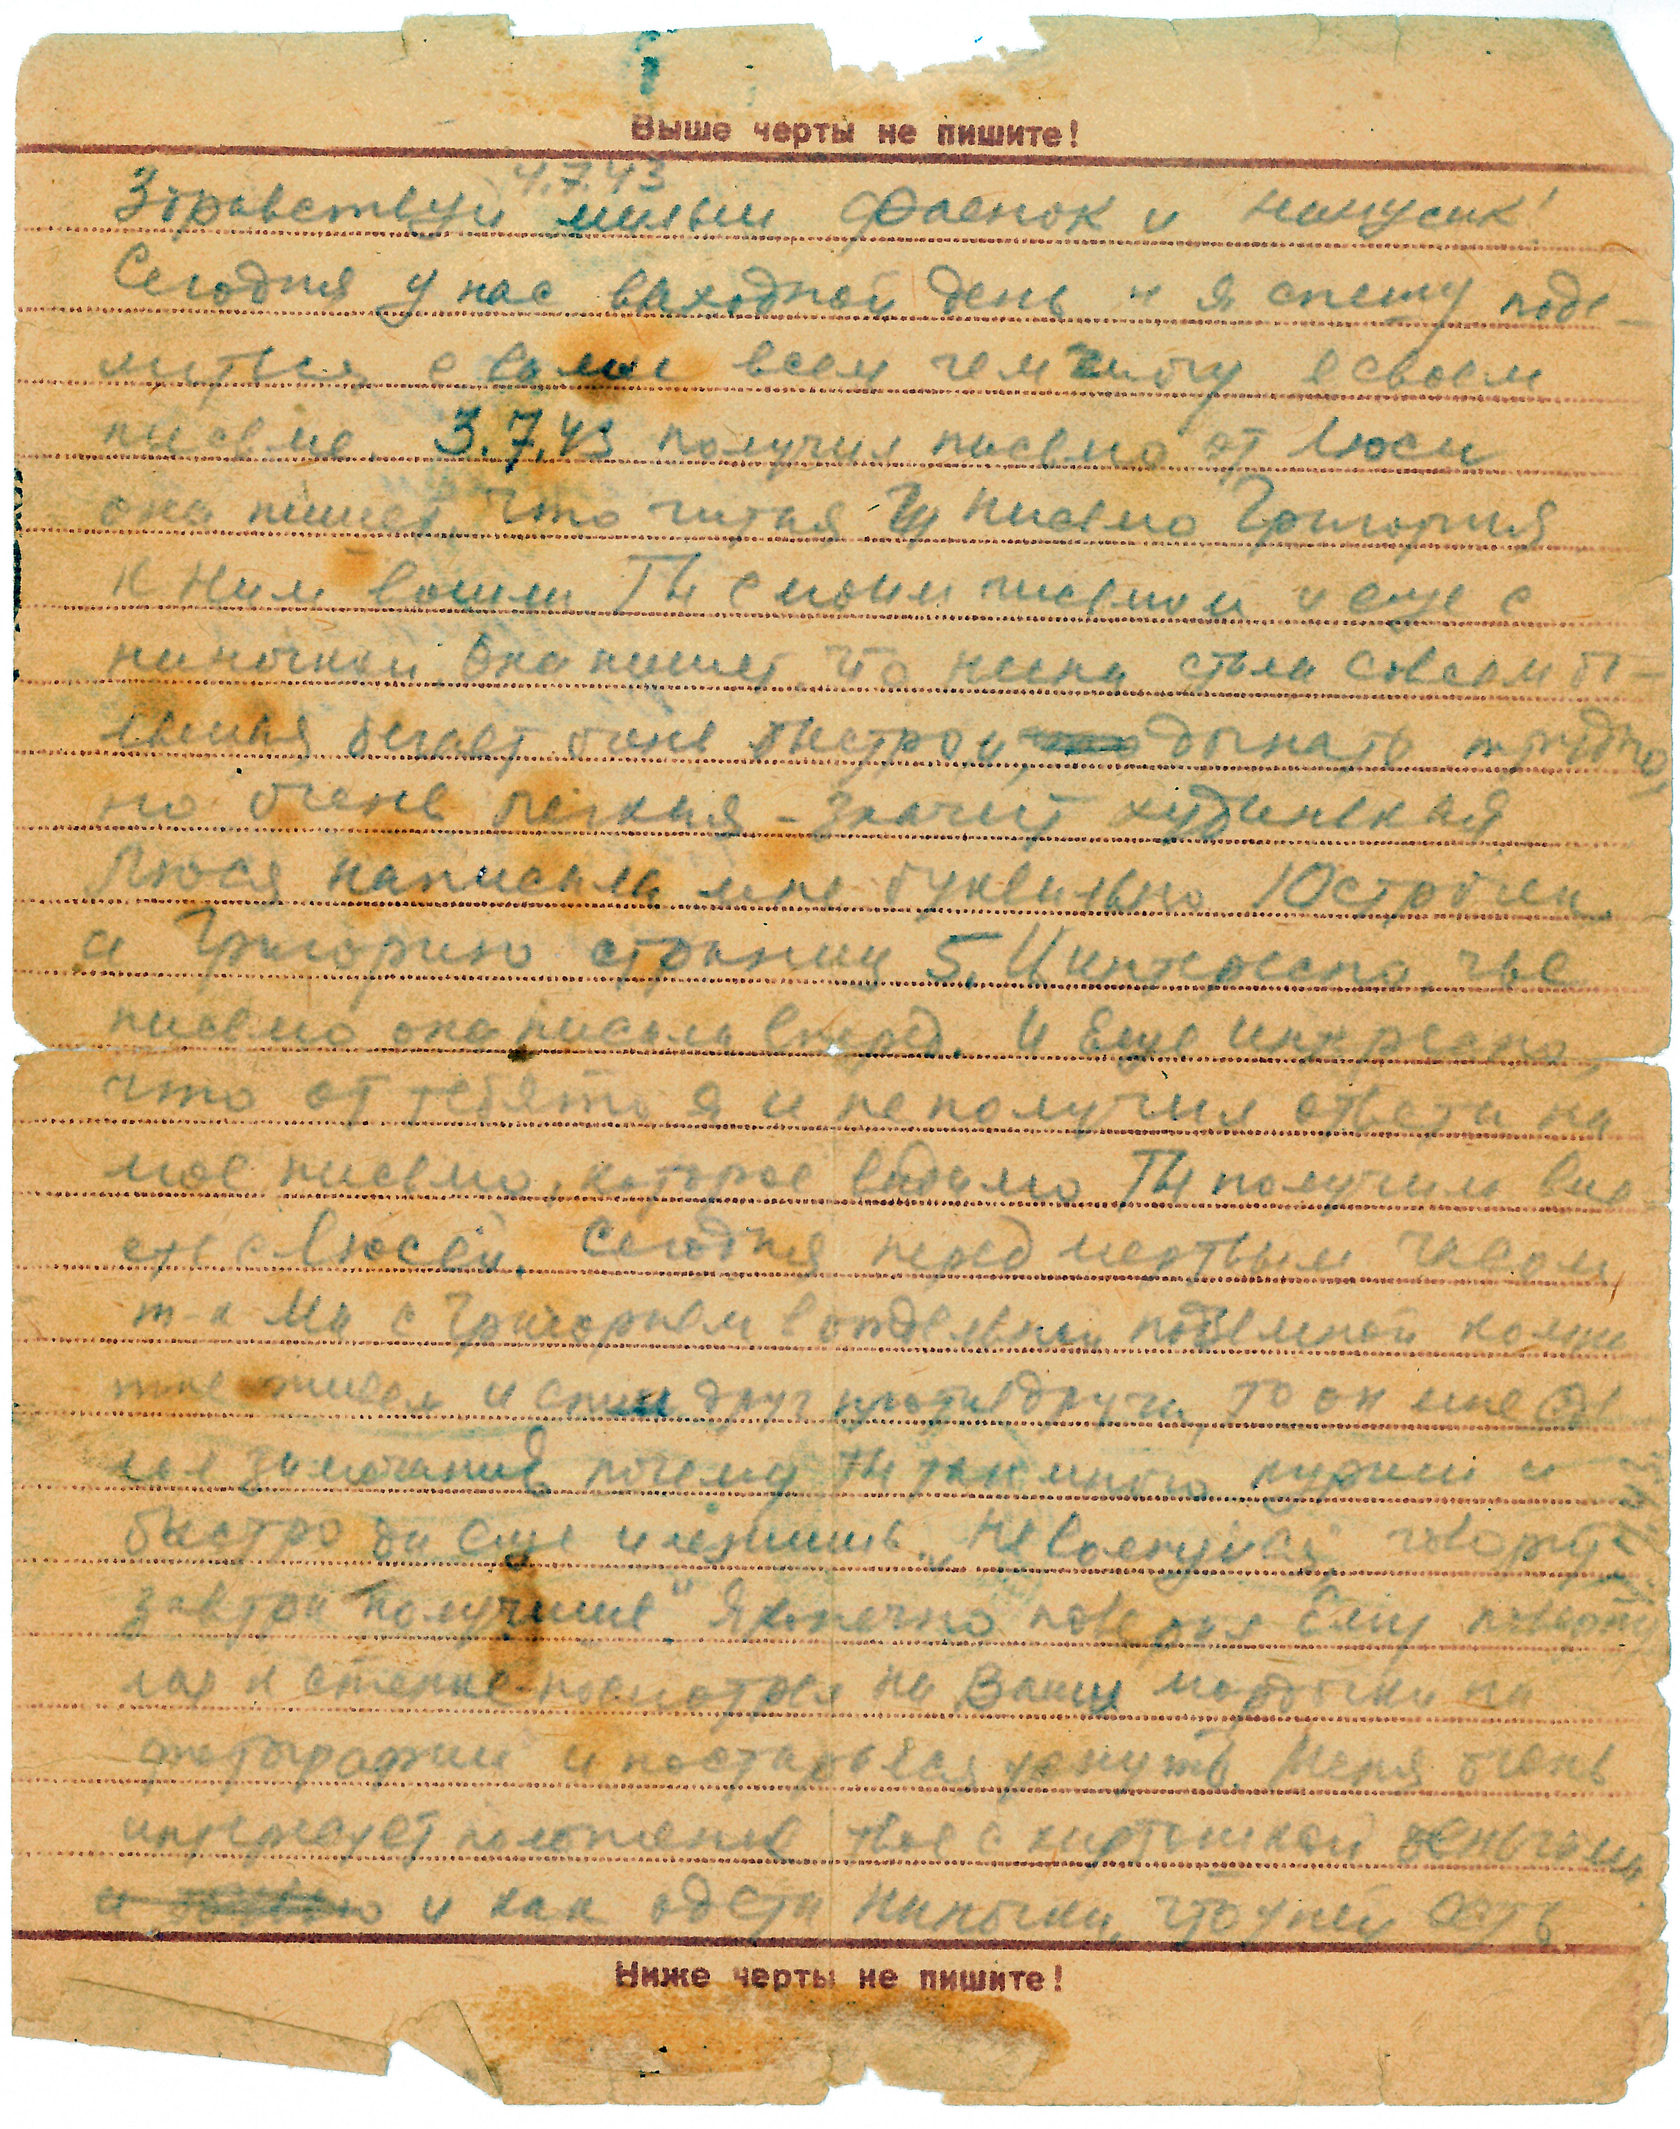 Выше черты не пишите!
4.7.43
Здравствуй милый Фаенок и нинусик!
Сегодня у нас выходной день и я спешу поде-
литься с вами всем чем могу в своем
письме. 3.7.43 получил письмо от Люси
она пишет, что читая письмо Григория
к ним вошли Ты с моим письмом и еще с
ниночкой. Она пишет, что нина стала совсем бо-
льшая бегает очень быстро и догнать трудно,
но очень легкая - значит худенькая
Люся написала мне буквально 10 строчек
а Григорию страниц 5. И интересно, чье
письмо она писала вперед. И еще интересно,
что от тебя то я и не получил ответа на
мое письмо, которое видимо Ты получила вме
сте с Люсей. Сегодня перед мертвым часом
т-к мы с Григорием в отдельной подземной комна
те живем и спим друг против друга, то он мне сде
лал замечание, почему ты так много куришь и
быстро да еще и лежишь. „Не волнуйся, говорит
завтра получишь" Я конечно поверил ему повернул
ся к стенке посмотрел на Ваши мордочки на
фотографии и постарался уснуть. Меня очень
интересует положение твое с картошкой деньгами
и и как одета ниночка, что у ней есть
Ниже черты не пишите!